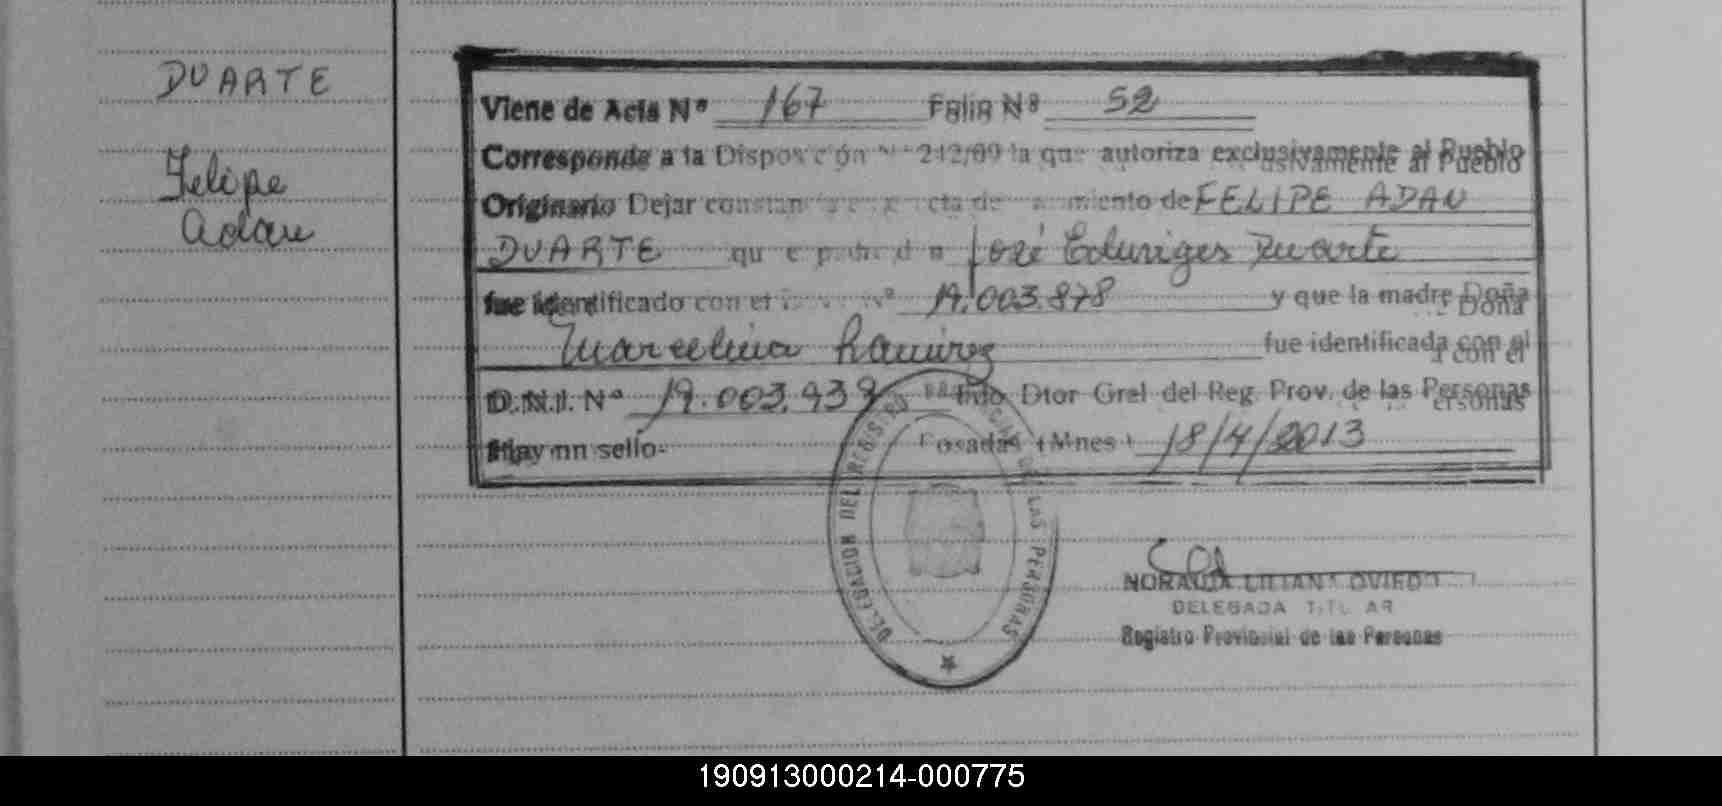 DUARTE
Felipe
Adan
Viene de Acta Nº 167 Folio Nº 52
Corresponde a la Disposición Nº 242/09 la que autoriza exclusivamente al Pueblo
Originario Dejar constancia acta de nacimiento de FELIPE ADAN
DUARTE que el padre don José Eduviges Duarte
fue identificado con el Nº 19.003.878 y que la madre Doña
Marcelina Ramirez fue identificada con el
D.N.I. Nº 19.003.939 Fdo Dtor Gral del Reg. Prov. de las Personas
Hay un sello- Posadas (Mnes) 18/4/2013
DELEGACION DEL REGISTRO PROVINCIAL DE LAS PERSONAS
NORALIA LILIANA OVIEDO
DELEGADA TITULAR
Registro Provincial de las Personas
190913000214-000775